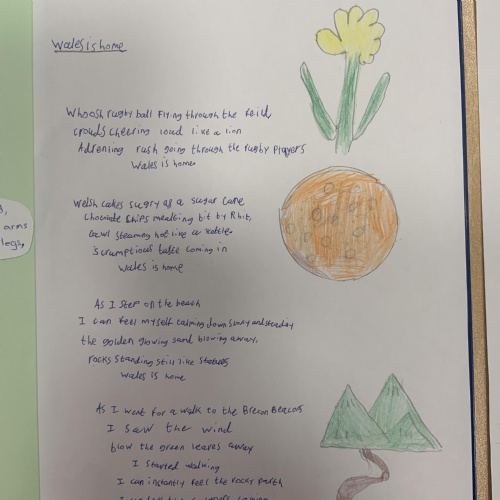 Wales is home
Whoosh rugby ball Flying through the feild,
crowds cheering loud like a lion
Adrenling rush going through the rugby players
Wales is home
Welsh cakes sugry as a sugar cane
Chocolate chips mealting bit by bit,
bowl steaming hot like a kettle.
scrumptious taste coming in
Wales is home
As I step on the beach
I can feel myself calming down slowly and steaday
the golden glowing sand blowing away,
rocks standing still like statues
Wales is home
As I went for a walk to the Brecon Beacons
I saw the wind
blow the green leaves away
I started walking
I can instantly feel the rocky path
arms
legs,